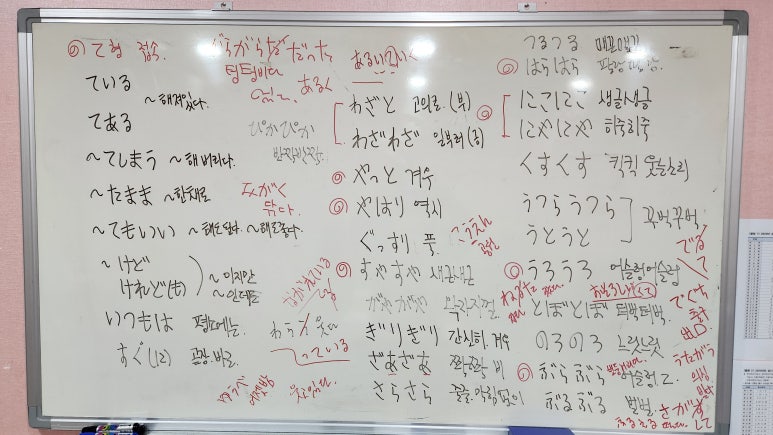 て형 접속
ている
~해져있다.
てある
~てしまう ~해 버리다.
~たまま ~한채로
~てもいい ~해도 된다. ~해도 좋다.
~けど
けれど(も)
~이지만
~인데도
いつもは 평소에는
すぐ(に) 곧장. 바로.
がらがらだった
텅텅비다
あるく
ぴかぴか
반짝반짝
みがく
닦다.
わらう 웃다
っている
웃고있다.
わざと 고의로.(부)
わざわざ 일부러(긍)
やっと 겨우
やはり 역시
ぐっすり 푹
すやすや 새근새근
がやがや 왁작지껄
ぎりぎり 간신히. 겨우
ざあざあ 쫙쫙 비
さらさら
つるつる 매끈매끈
はらはら
にこにこ 생글생글
にやにや 히죽히죽
くすくす 킥킥 웃는소리
うつらうつら
うとうと
꾸벅꾸벅
うろうろ 어슬렁어슬렁
とぼとぼ 터벅터벅.
のろのろ 느릿느릿
ぶらぶら 어슬렁
ぶるぶる 벌벌
でる
でぐち
출구
うたがう
의심
さがす